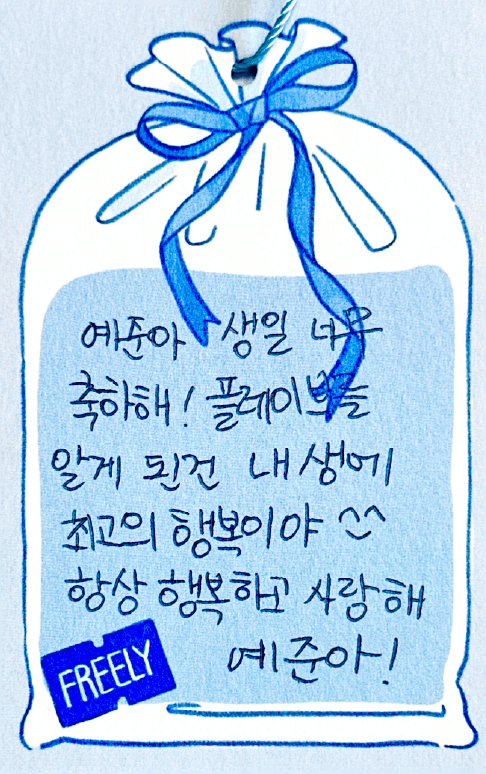 예준아 생일 너무
축하해! 플레이브를
알게 된건 내 생에
최고의 행복이야 ^^
항상 행복하고 사랑해
예준아!
FREELY